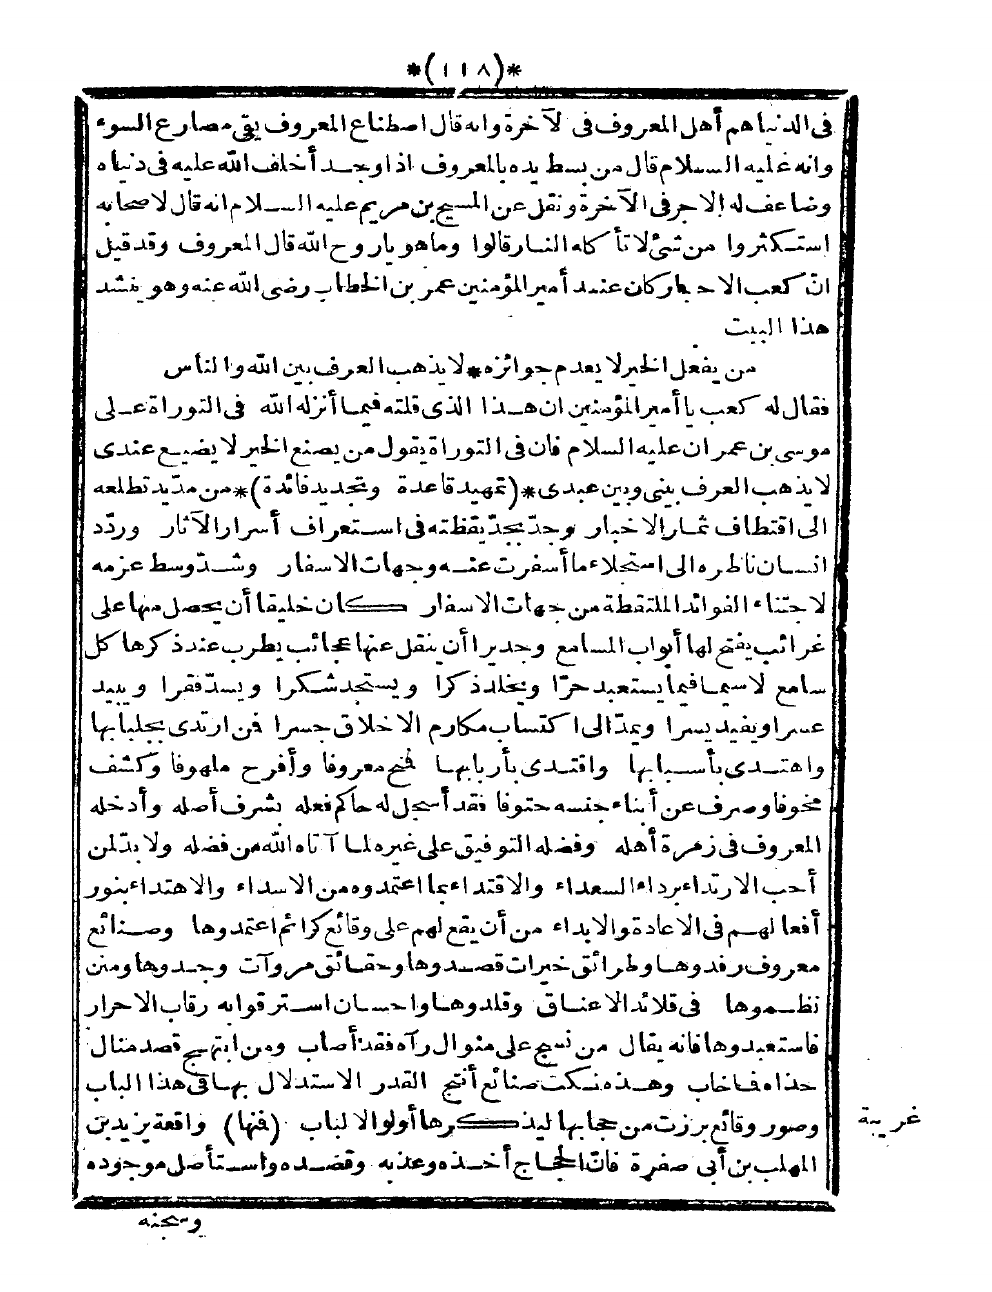 *(١١٨)*
فى الدنيا هم أهل المعروف فى لآخرة وانه قال اصطناع المعروف يقى مصارع السوء
وانه عليه السلام قال من بسط يده بالمعروف اذا وجد أخلف الله عليه فى دنياه
وضاعف له الاجر فى الآخرة ونقل عن المسيح بن مريم عليه السلام انه قال لاصحابه
استكثروا من شئ لا تأكله النار قالوا وما هو ياروح الله قال المعروف وقد قيل
ان كعب الاحبار كان عند أمير المؤمنين عمر بن الخطاب رضى الله عنه وهو ينشد
هذا البيت
من يفعل الخير لا يعدم جوائزه * لا يذهب العرف بين الله والناس
فقال له كعب يا أمير المؤمنين ان هذا الذى قلته فيما أنزله الله فى التوراة على
موسى بن عمران عليه السلام فان فى التوراة يقول من يصنع الخير لا يضيع عندى
لا يذهب العرف بينى وبين عبدى *(تمهيد قاعدة وتجديد فائدة)* من مدّيد تطلعه
الى اقتطاف ثمار الاخبار وجدّ بجدّ يقظته فى استعراف أسرار الآثار وردّد
انسان ناظره الى استجلاء ما أسفرت عنه وجهات الاسفار وشدّ وسط عزمه
لاجتناء الفوائد الملتقطة من جهات الاسفار كان خليقا أن يحصل منها على
غرائب يفتح لها أبواب المسامع وجديرا أن ينقل عنها عجائب يطرب عند ذكرها كل
سامع لا سيما فيما يستعبد حرّا ويخلد ذكرا ويستجد شكرا ويسدّ فقرا ويبيد
عسرا ويفيد يسرا ويمدّ الى اكتساب مكارم الاخلاق جسرا فمن ارتدى بجلبابها
واهتدى بأسبابها واقتدى بأربابها فمنح معروفا وأفرح ملهوفا وكشف
مخوفا وصرف عن أبناء جنسه حتوفا فقد أسجل له حاكم فعله بشرف أصله وأدخله
المعروف فى زمرة أهله وفضله التوفيق على غيره لما آتاه الله من فضله ولا بدّ لمن
أحب الارتداء برداء السعداء والاقتداء بما اعتمدوه من الاسداء والاهتداء بنور
أفعالهم فى الاعادة والابداء من أن يقع لهم على وقائع كرائم اعتمدوها وصنائع
معروف رفدوها وطرائق خيرات قصدوها وحقائق مروآت وجدوها ومنن
نظموها فى قلائد الاعناق وقلدوها واحسان استرقوا به رقاب الاحرار
فاستعبدوها فانه يقال من نسج على منوال رآه فقد أصاب ومن ابتهج قصد منال
حذاه فما خاب وهذه نكت صنائع أنتج القدر الاستدلال بها فى هذا الباب
وصور وقائع برزت من حجابها ليذكرها أولو الالباب (فمنها) واقعة يزيد بن
المهلب بن أبى صفرة فانّ الحجاج أخذه وعذبه وقصده واستأصل موجوده
غريبة
وسجنه